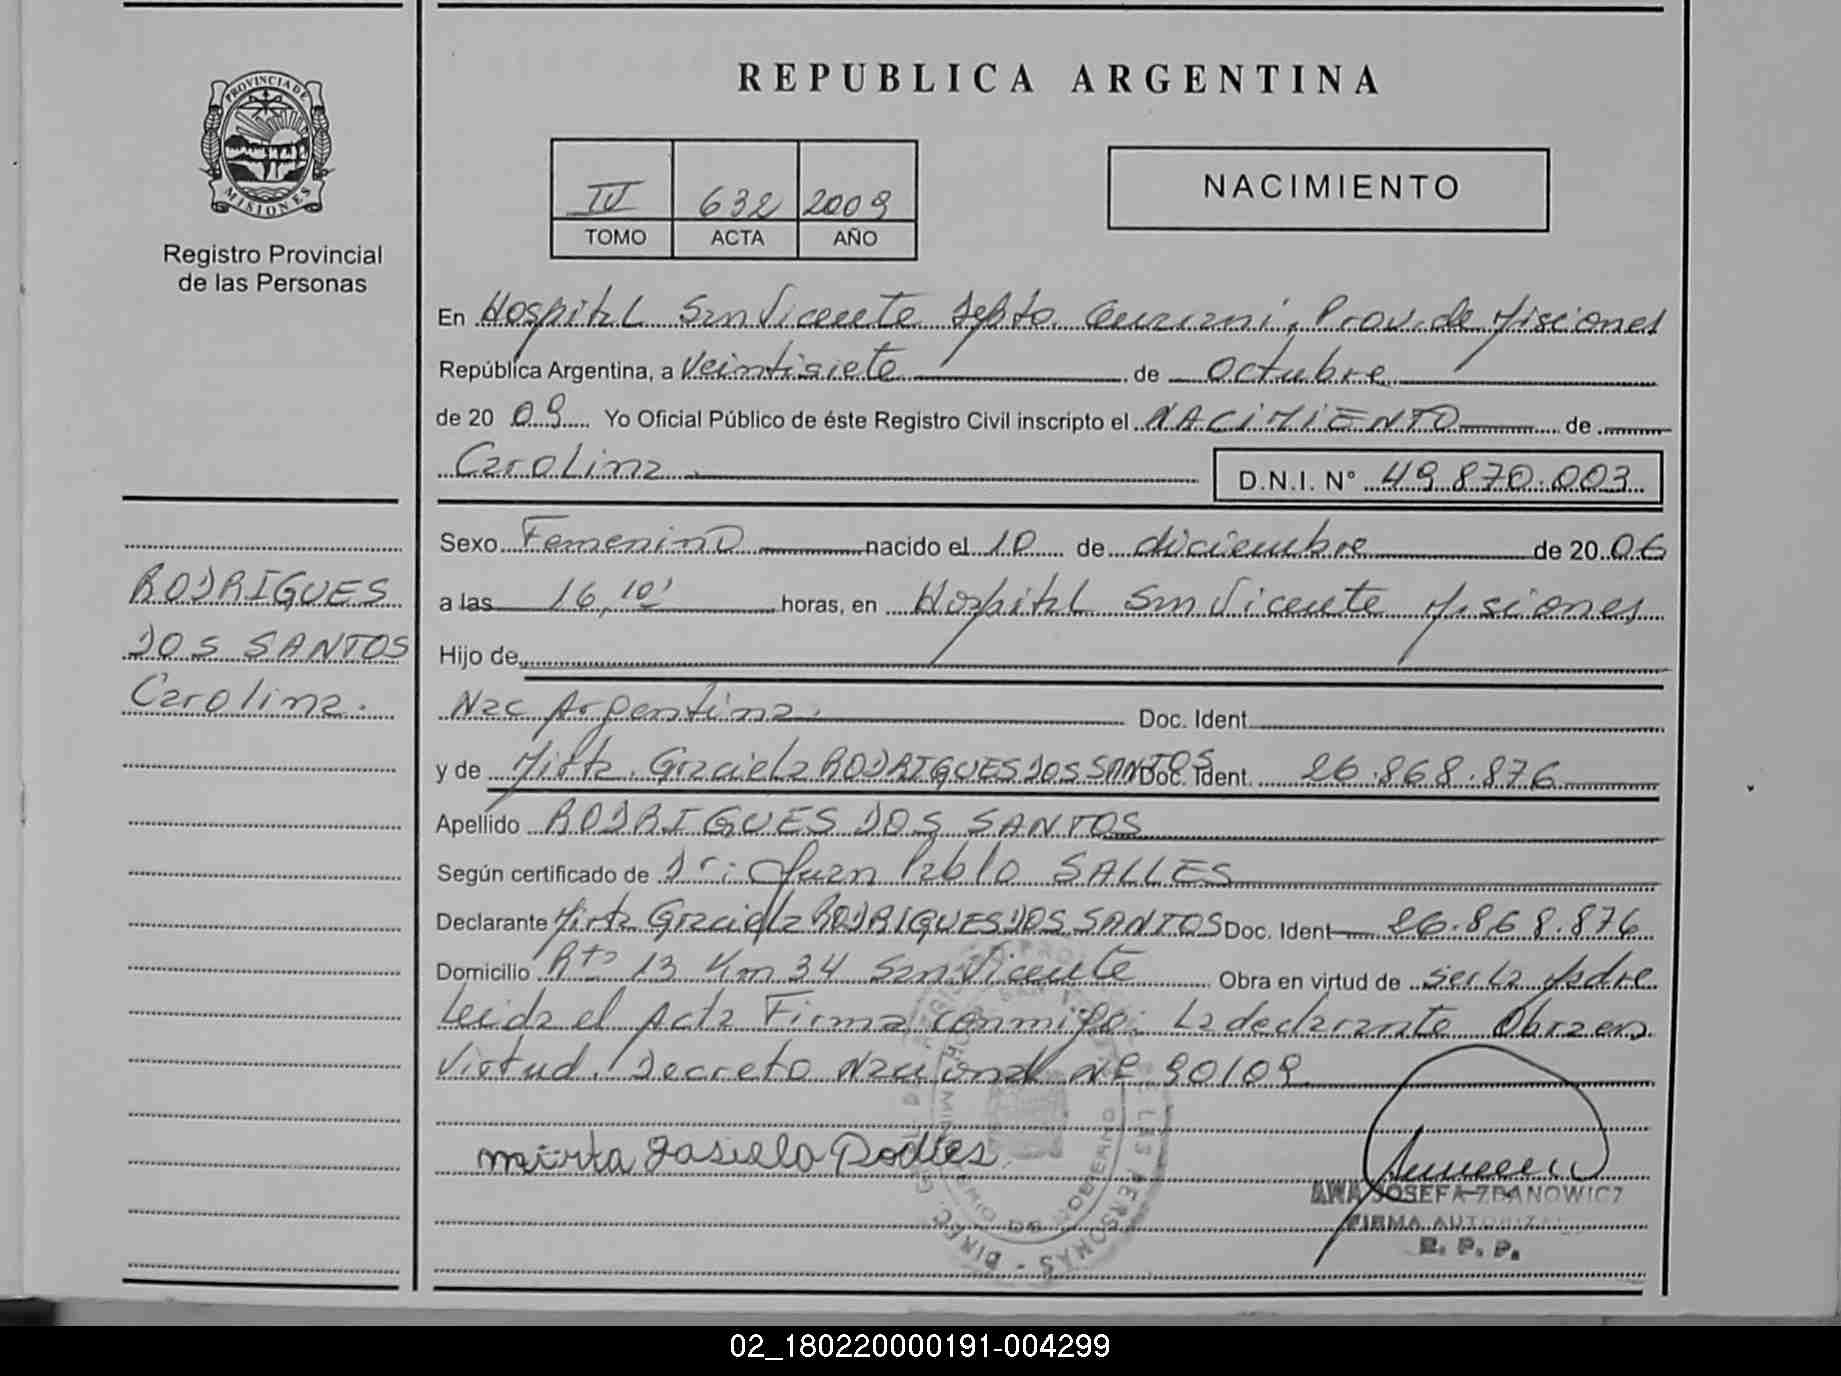 REPUBLICA ARGENTINA
PROVINCIA DE
MISIONES
Registro Provincial
de las Personas
IV 632 2009
TOMO ACTA AÑO
NACIMIENTO
En Hospital San Vicente Dpto. Guarani, Prov. de Misiones
República Argentina, a Veintisiete de Octubre
de 20 09 Yo Oficial Público de éste Registro Civil inscripto el NACIMIENTO de
Carolina D.N.I. N° 49.870.003
RODRIGUES
DOS SANTOS
Carolina.
Sexo Femenino nacido el 10 de diciembre de 20 06
a las 16,10' horas, en Hospital San Vicente Misiones
Hijo de
Nac Argentina. Doc. Ident.
y de Mirta Graciela RODRIGUES DOS SANTOS Doc. Ident. 26.868.876
Apellido RODRIGUES DOS SANTOS
Según certificado de Dr: Juan Pablo SALLES
Declarante Mirta Graciela RODRIGUES DOS SANTOS Doc. Ident 26.868.876
Domicilio Rta 13 Km 34 San Vicente Obra en virtud de ser la Madre
Leida el Acta Firma conmigo: La declarante Obra en
Virtud. Decreto Nacional Nº 90/09
mirta Jasiela Rodles
JOSEFA ZDANOWICZ
FIRMA AUTORIZADA
R. P. P.
02_180220000191-004299